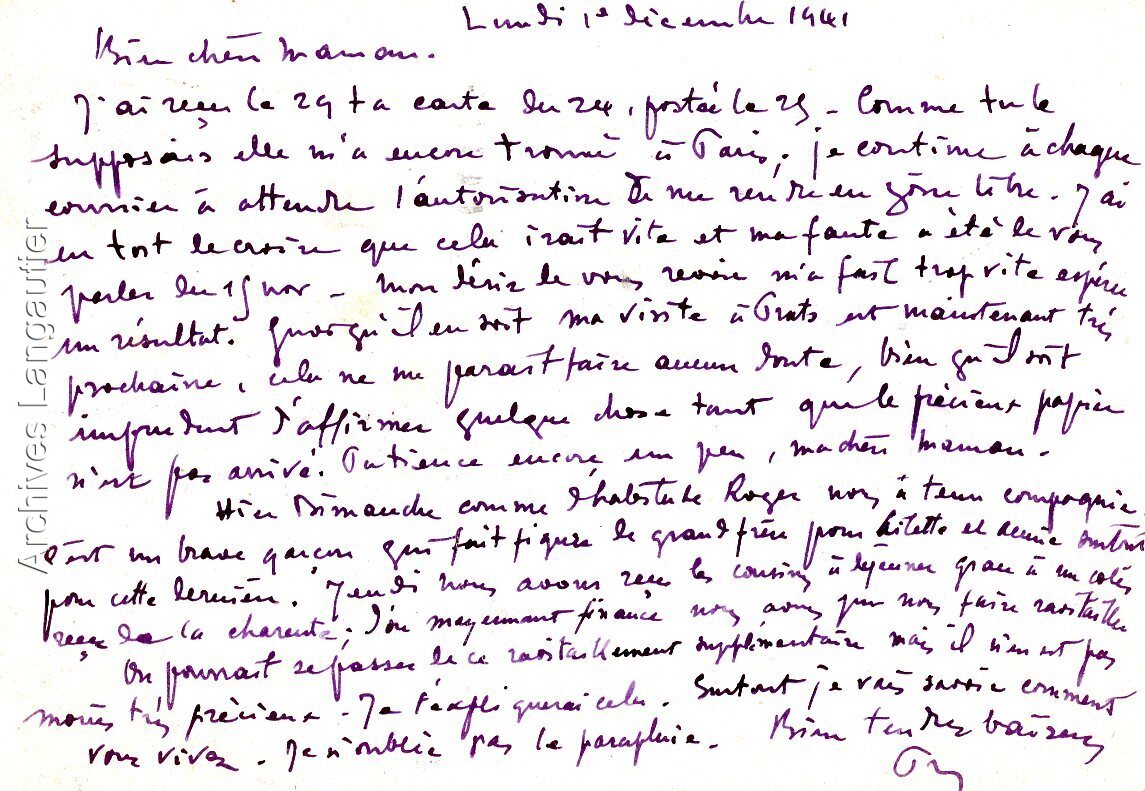 Lundi 1e décembre 1941
Bien chère Maman.
J'ai reçu le 29 ta carte du 24, postée le 25 - Comme tu le
supposais elle m'a encore trouvé à Paris; je continue à chaque
courrier à attendre l'autorisation de me rendre en zône libre. J'ai
eu tort de croire que cela irait vite et ma faute a été de vous
parler du 15 nov - Mon désir de vous revoir m'a fait trop vite espérer
un résultat. Quoiqu'il en soit ma visite à Prats est maintenant très
prochaine, cela ne me parait faire aucun doute, bien qu'il soit
imprudent d'affirmer quelque chose tant que le précieux papier
n'est pas arrivé. Patience encore un peu, ma chère Maman.
Hier Dimanche comme d'habitude Roger nous a tenu compagnie
C'est un brave garçon qui fait figure de grand frère pour et surtout
pour cette dernière. Jeudi nous avons reçu les cousins à déjeuner grace à un colis
reçu de la charente; d'où moyennant finance nous avons pu nous faire ravitailler
On pourrait se passer de ce ravitaillement supplémentaire mais il n'en est pas
moins très précieux. Je t'expliquerai cela. Surtout je vais savoir comment
vous vivez. Je n'oublie pas le parapluie. Bien tendres baisers
Archives Langautier